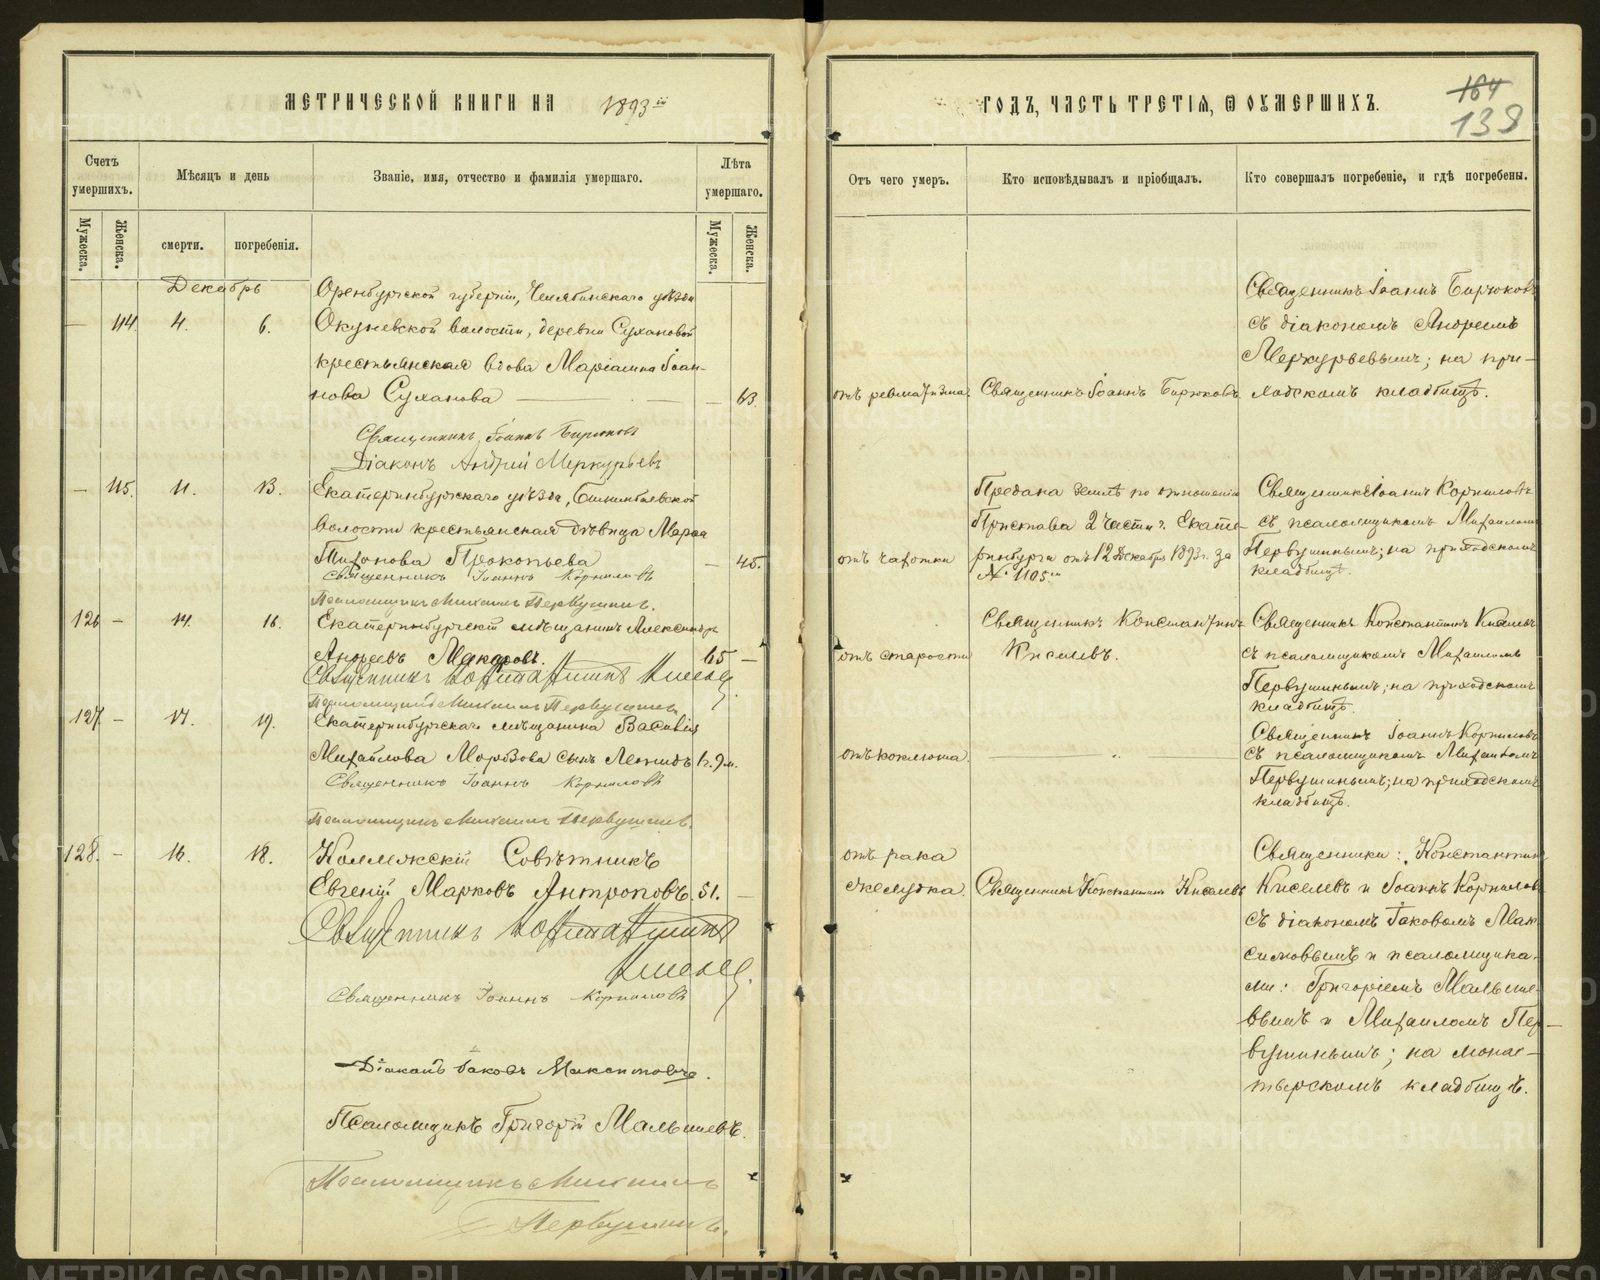 МЕТРИЧЕСКОЙ КНИГИ НА 1893 й
ГОДЪ, ЧАСТЬ ТРЕТІЯ, Ѿ ОУМЕРШИХЪ.
164
138
Счетъ умершихъ.
Мѣсяцъ и день
Званіе, имя, отчество и фамилія умершаго.
Лѣта умершаго.
Мужеска.
Женска.
смерти.
погребенія.
Мужеска.
Женска.
Отъ чего умеръ.
Кто исповѣдывалъ и пріобщалъ.
Кто совершалъ погребеніе, и гдѣ погребены.
Декабрь
— 114. 4. 6.
Оренбургской губерніи, Челябинскаго уѣзда
Окуневской волости, деревни Сухановой
крестьянская вдова Маріамна Іоан-
нова Суханова — — 63.
отъ ревматизма.
Священникъ Іоаннъ Бирюковъ.
Священникъ Іоаннъ Бирюковъ
съ діакономъ Андреемъ
Меркурьевымъ; на при-
ходскомъ кладбищѣ.
Священникъ Іоаннъ Бирюковъ
Діаконъ Андрей Меркурьевъ
— 115. 11. 13.
Екатеринбургскаго уѣзда, Билимбаевской
волости крестьянская дѣвица Марѳа
Тихонова Прокопьева — 45.
отъ чахотки
Предана землѣ по отношенію
Пристава 2 части г. Екате-
ринбурга отъ 12 Декабря 1893 г. за
№ 1105
Священникъ Іоаннъ Корниловъ
съ псаломщикомъ Михаиломъ
Первушинымъ; на приходскомъ
кладбищѣ.
Священникъ Іоаннъ Корниловъ
Псаломщикъ Михаилъ Первушинъ.
126 — 14. 16.
Екатеринбургскій мѣщанинъ Александръ
Андреевъ Макаровъ. 65 —
отъ старости
Священникъ Константинъ
Киселевъ.
Священникъ Константинъ Киселевъ
съ псаломщикомъ Михаиломъ
Первушинымъ; на приходскомъ
кладбищѣ.
Священникъ Константинъ Киселевъ
Псаломщикъ Михаилъ Первушинъ
127 — 17. 19.
Екатеринбургскаго мѣщанина Василія
Михайлова Морозова сынъ Леонидъ 1 г. 9 м.
отъ коклюша.
Священникъ Іоаннъ Корниловъ
съ псаломщикомъ Михаиломъ
Первушинымъ; на приходскомъ
кладбищѣ.
Священникъ Іоаннъ Корниловъ
Псаломщикъ Михаилъ Первушинъ.
128. — 16. 18.
Коллежскій Совѣтникъ
Евгеній Марковъ Антроповъ. 51. —
отъ рака
желудка.
Священникъ Константинъ Киселевъ
Священники: Константинъ
Киселевъ и Іоаннъ Корниловъ
съ діакономъ Іаковомъ Мак-
симовымъ и псаломщика-
ми: Григоріемъ Малыше-
вымъ и Михаиломъ Пер-
вушинымъ; на монас-
тырскомъ кладбищѣ.
Священникъ Константинъ
Киселевъ.
Священникъ Іоаннъ Корниловъ
Діаконъ Іаковъ Максимовъ.
Псаломщикъ Григорій Малышевъ.
Псаломщикъ Михаилъ
Первушинъ.
METRIKI.GASO-URAL.RU